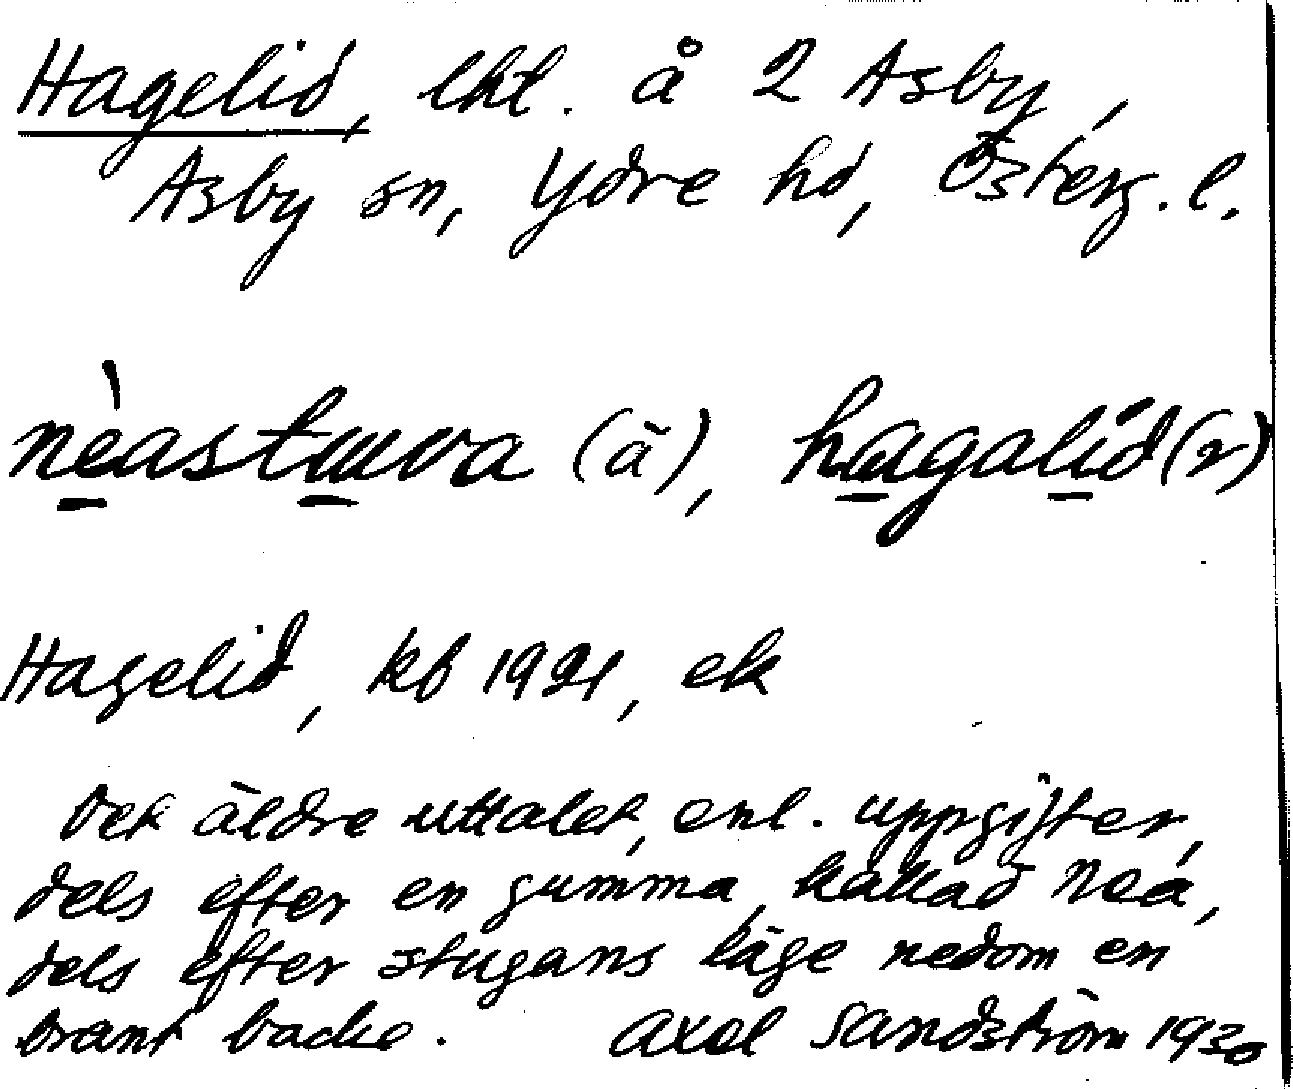 Hagelid, lht. å 2 Asby,
Asby sn, Ydre hd, Österg. l.
nèastuwa (ä), hagalid (2)
Hagelid, kb 1921, ek
Det äldre uttalet, enl. uppgifter,
dels efter en gumma, kallad Nea,
dels efter stugans läge nedom en
brant backe. Axel Sandström 1930